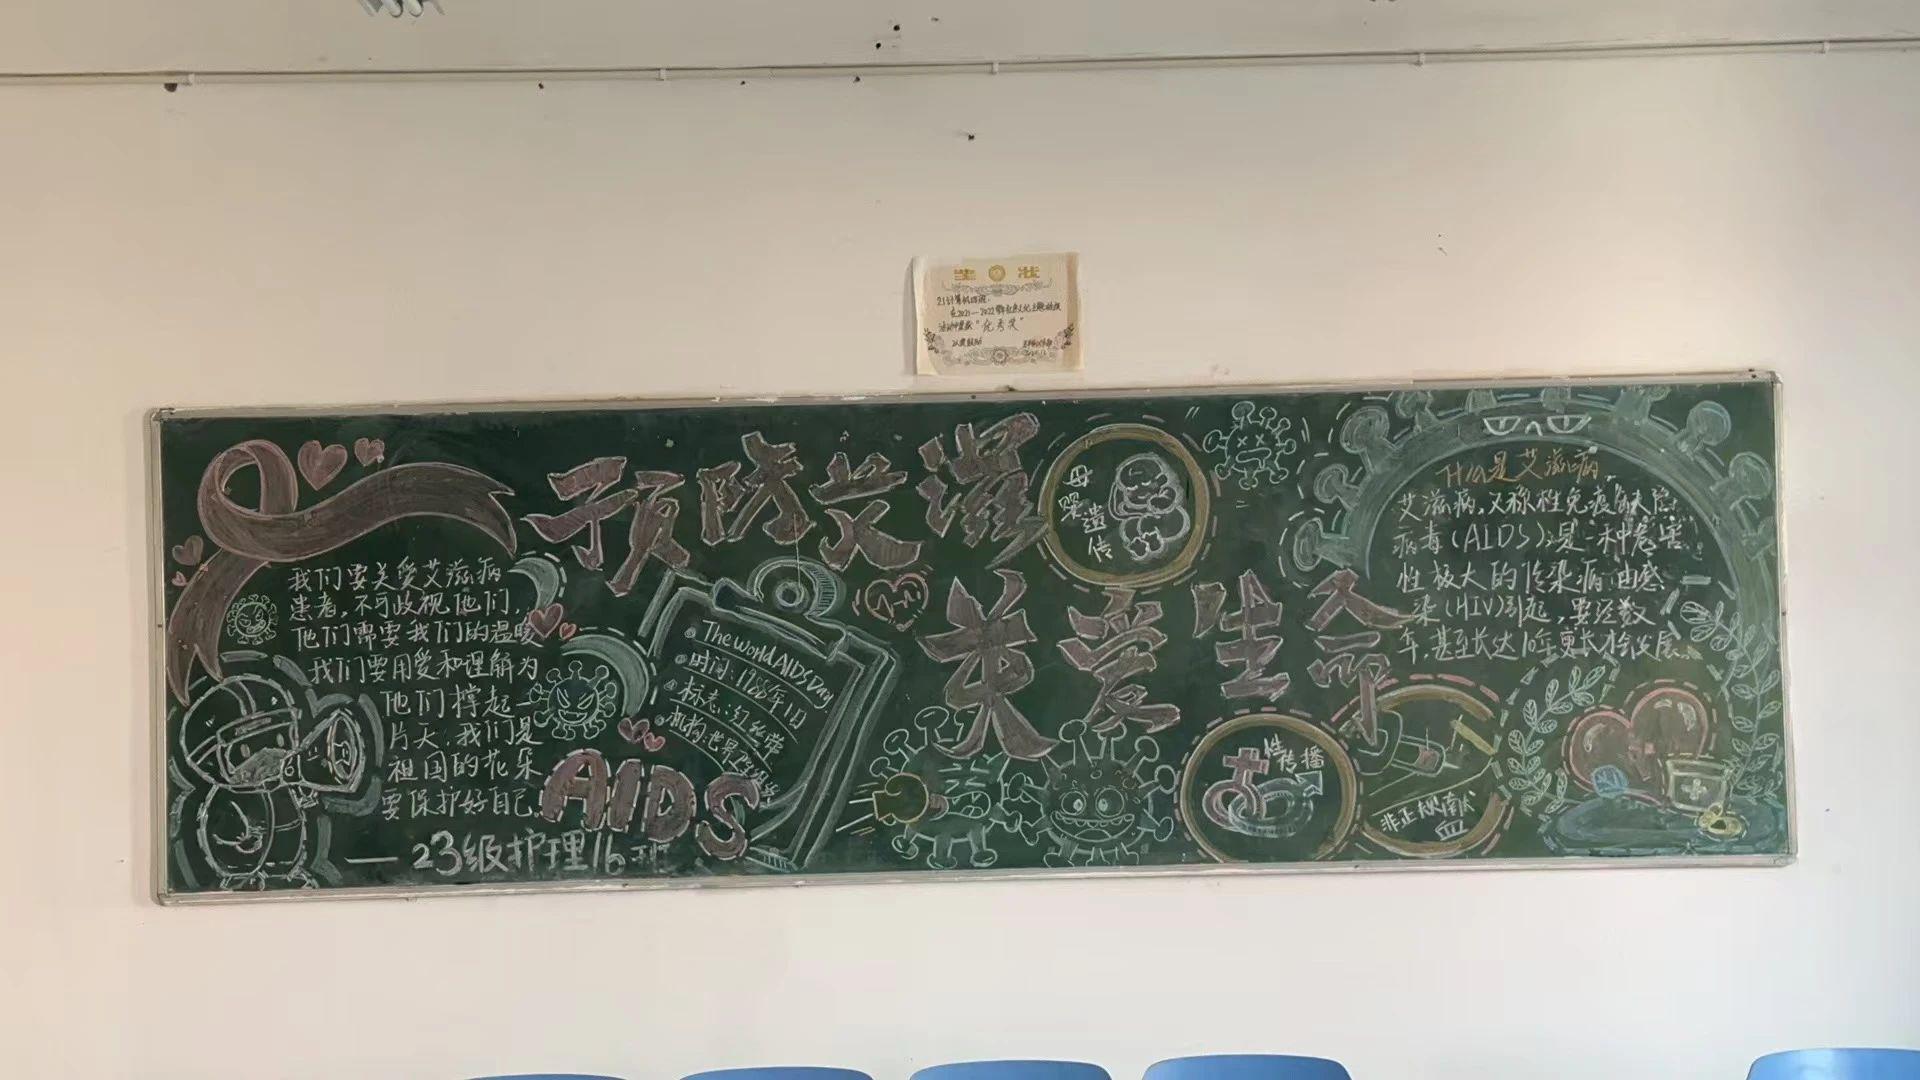 21计算机四班:
活动中荣获"优秀奖"
预防艾滋
关爱生命
我们要关爱艾滋病
患者,不可歧视他们,
他们需要我们的温暖
我们要用爱和理解为
他们撑起一
片天,我们是
祖国的花朵
要保护好自己
AIDS
— 23级护理16班
The world AIDS Day
时间:1988年1月
标志:红丝带
机构:世界卫生组织
母婴遗传
性传播
什么是艾滋病
艾滋病,又称性免疫缺陷
病毒(AIDS)是一种危害
性极大的传染病,由感
染(HIV)引起,要经数
年,甚至长达10年更长才会发展